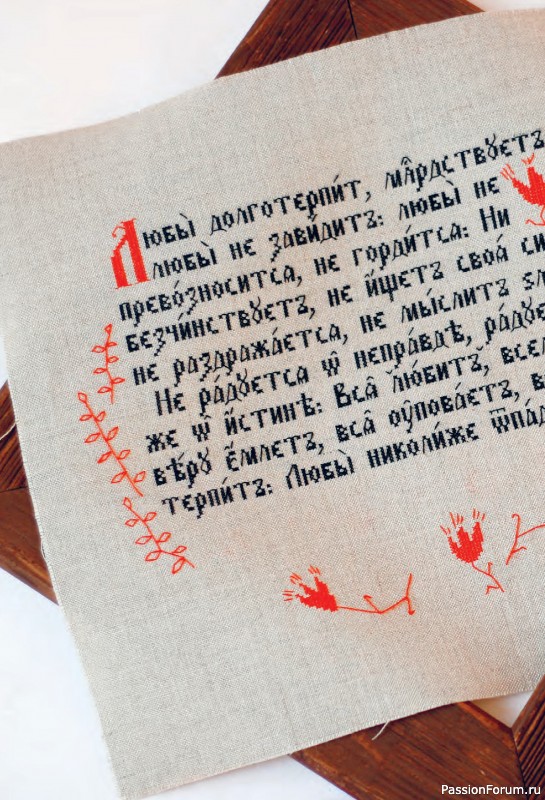 Любы̀ долготерпи́тъ, млⷭ҇рдствꙋетъ
любы̀ не зави́дитъ: любы̀ не
превозно́сится, не горди́тся: Ни
безчи́нствꙋетъ, не и҆́щетъ своѧ̑ си
не раздража́ется, не мы́слитъ ѕл
Не ра́дꙋется ѡ҆ непра́вдѣ, ра́дꙋе
же ѡ҆ и҆́стинѣ: Всѧ̑ лю́битъ, всем
вѣ́рꙋ є҆́млетъ, всѧ̑ ᲂу҆пова́етъ, в
терпи́тъ: Любы̀ николи́же ѿпад
PassionForum.ru